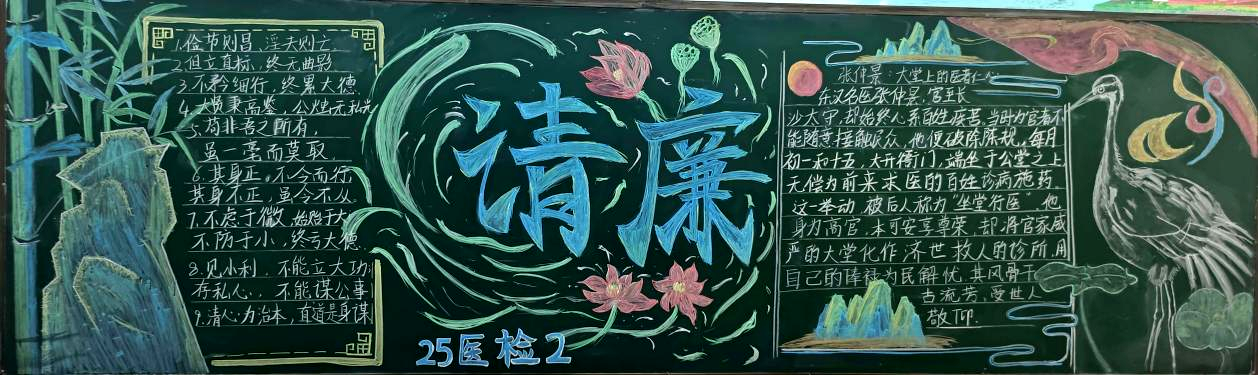 1.俭节则昌、淫夫则亡
2.但立直标，终无曲影
3.不矜细行，终累大德
4.大货秉高鉴，公烛无私光
5.苟非吾之所有，
虽一毫而莫取
6.其身正，不令而行
其身不正，虽令不从
7.不虑于微，始贻于大
不防于小，终亏大德
8.见小利，不能立大功
存私心，不能谋公事
9.清心为治本，直道是身谋
清廉
25医检2
张仲景：大堂上的医者仁心
东汉名医张仲景，官至长
沙太守，却始终心系百姓疾苦，当时为官者不
能随意接触民众，他便破除陈规，每月
初一和十五，大开衙门，端坐于公堂之上
无偿为前来求医的百姓诊病施药
这一举动 被后人称为“坐堂行医” 他
身为高官，本可安享尊荣，却将官家威
严的大堂化作济世救人的诊所，用
自己的俸禄为民解忧，其风骨千
古流芳，受世人
敬仰.